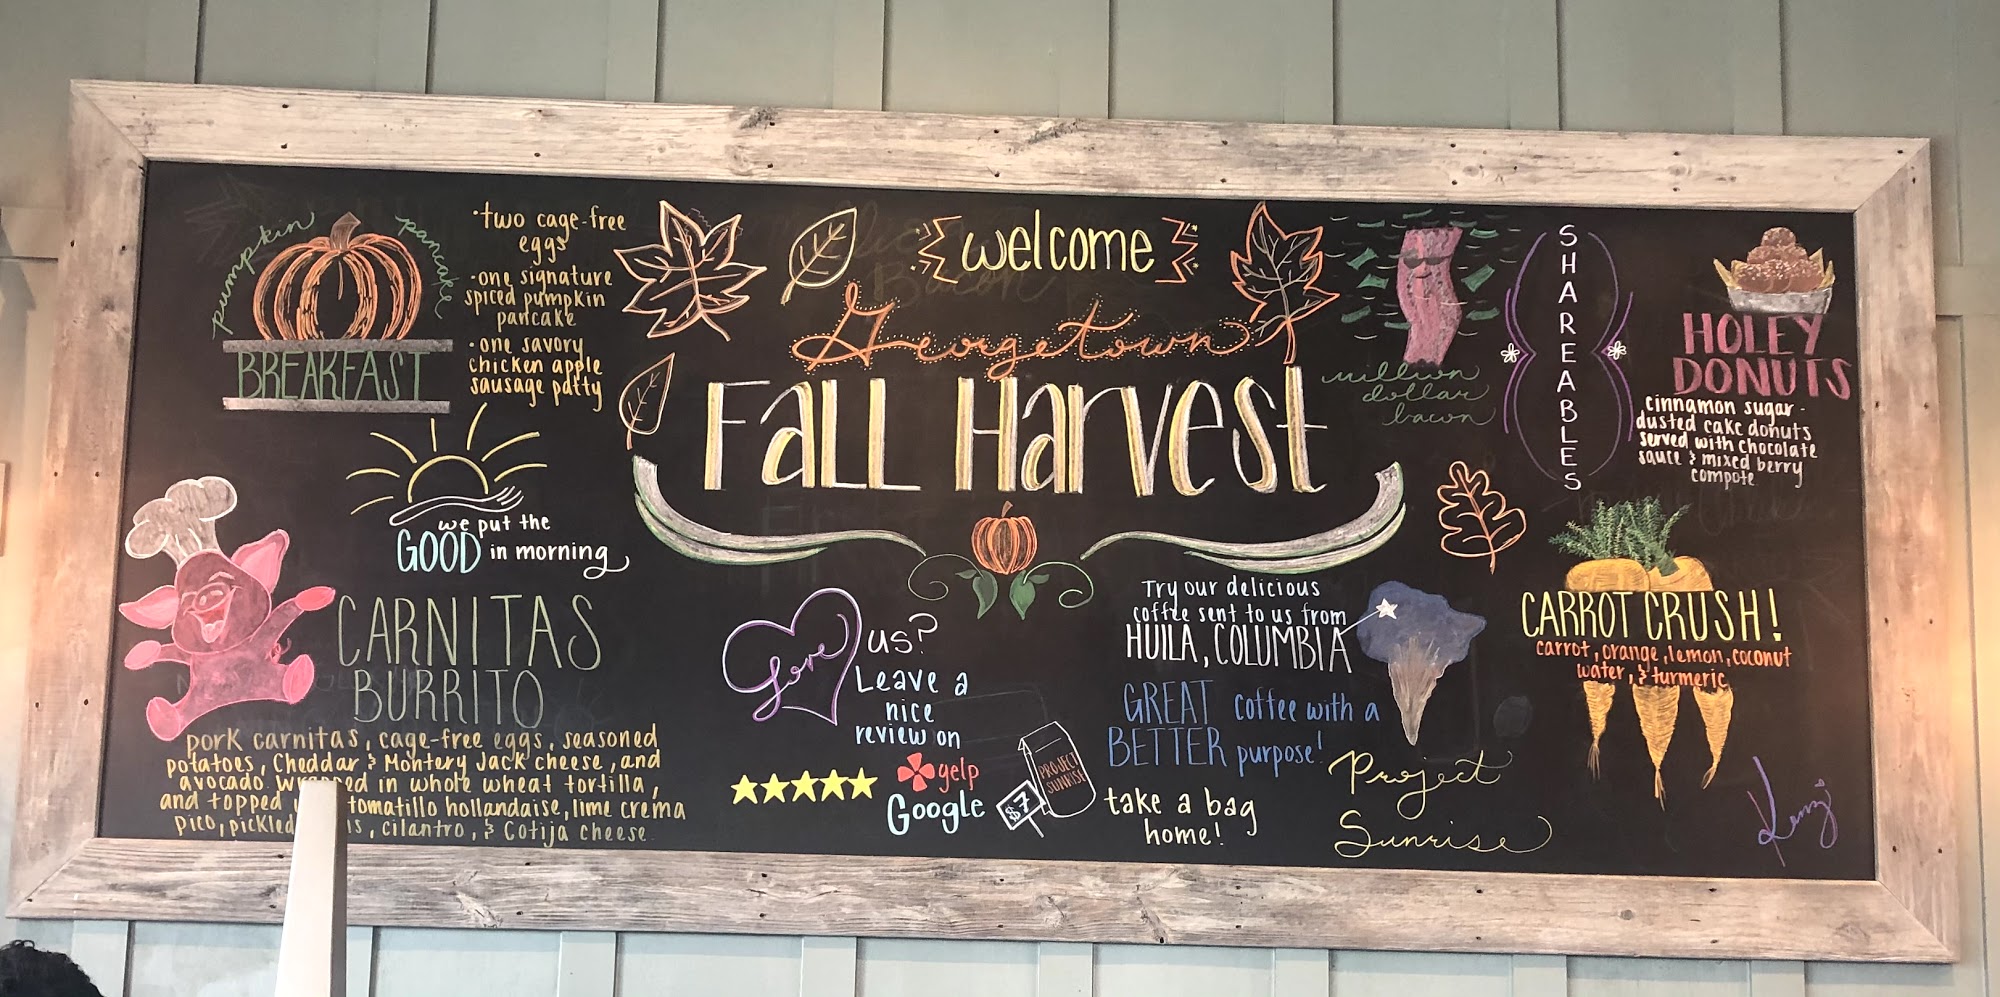 pumpkin
pancake
BREAKFAST
·two cage-free
eggs
·one signature
spiced pumpkin
pancake
·one savory
chicken apple
sausage patty
we put the
GOOD in morning
CARNITAS
BURRITO
pork carnitas, cage-free eggs, seasoned
potatoes, Cheddar & Montery Jack cheese, and
avocado. Wrapped in whole wheat tortilla,
and topped tomatillo hollandaise, lime crema
pico, pickled cilantro, & Cotija cheese.
welcome
Georgetown
Fall Harvest
Love us?
Leave a
nice
review on
yelp
Google
PROJECT
SUNRISE
$7
take a bag
home!
Try our delicious
coffee sent to us from
HUILA, COLUMBIA
GREAT coffee with a
BETTER purpose!
Project
Sunrise
million
dollar
bacon
SHAREABLES
HOLEY
DONUTS
cinnamon sugar-
dusted cake donuts
served with chocolate
sauce & mixed berry
compote
CARROT CRUSH!
carrot, orange, lemon, coconut
water, & turmeric
Kenzi